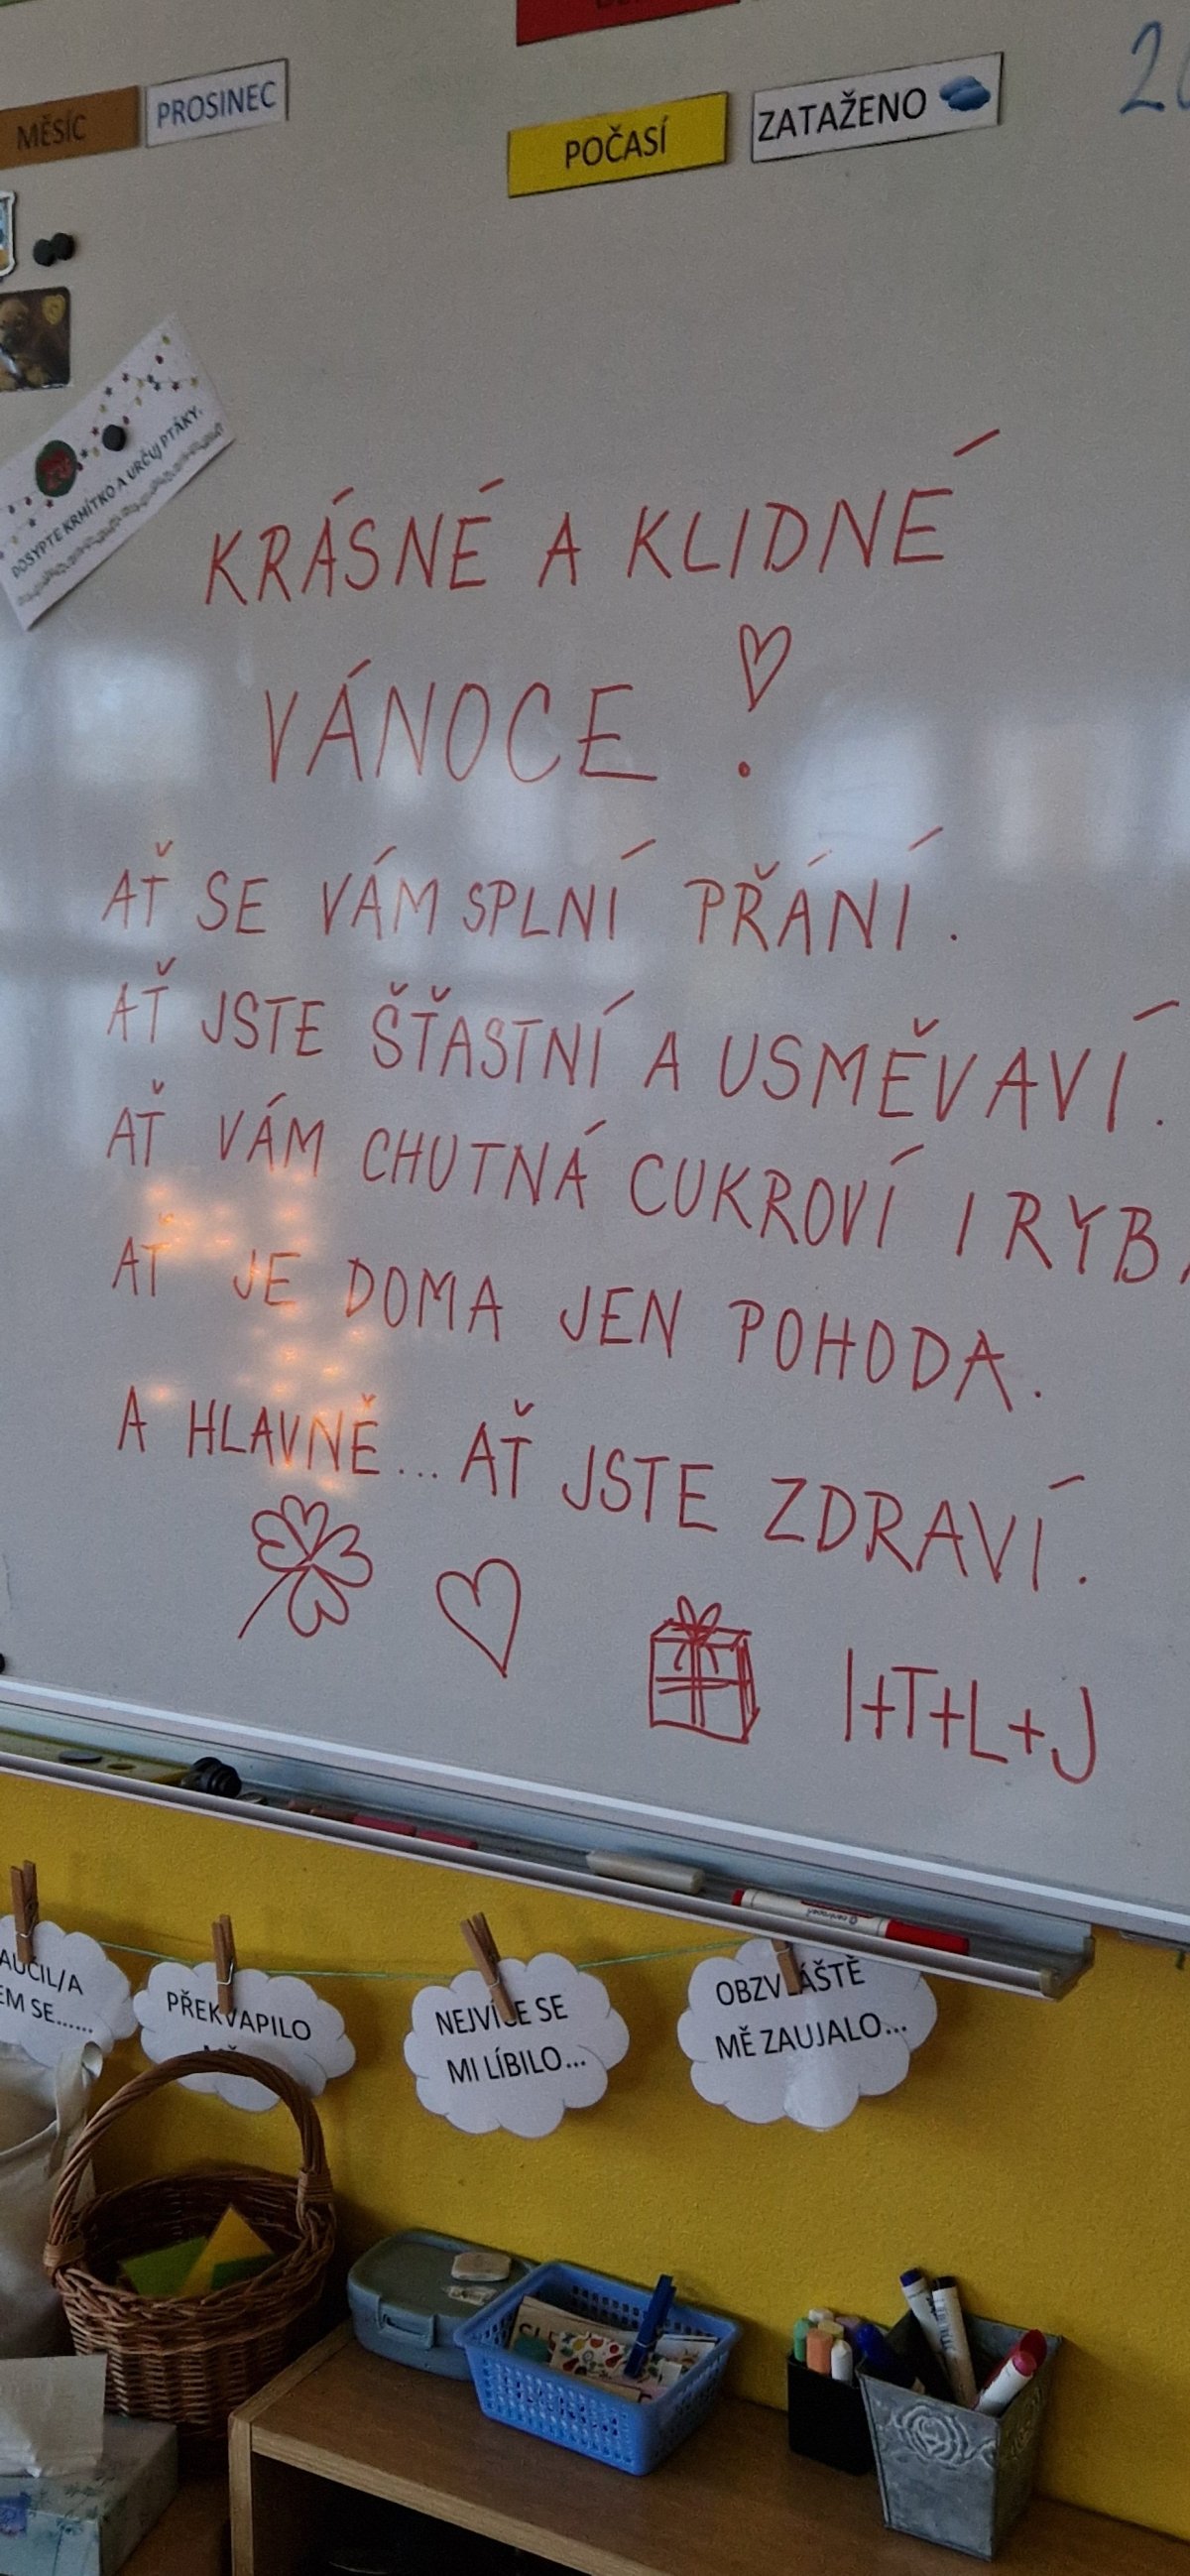 MĚSÍC PROSINEC
POČASÍ ZATAŽENO
DOSYPTE KRMÍTKO A URČUJ PTÁKY.
KRÁSNÉ A KLIDNÉ
VÁNOCE
AŤ SE VÁM SPLNÍ PŘÁNÍ.
AŤ JSTE ŠŤASTNÍ A USMĚVAVÍ.
AŤ VÁM CHUTNÁ CUKROVÍ I
AŤ JE DOMA JEN POHODA.
A HLAVNĚ... AŤ JSTE ZDRAVÍ.
I+T+L+J
SE......
PŘEKVAPILO
NEJVÍCE SE
MI LÍBILO...
OBZVLÁŠTĚ
MĚ ZAUJALO...